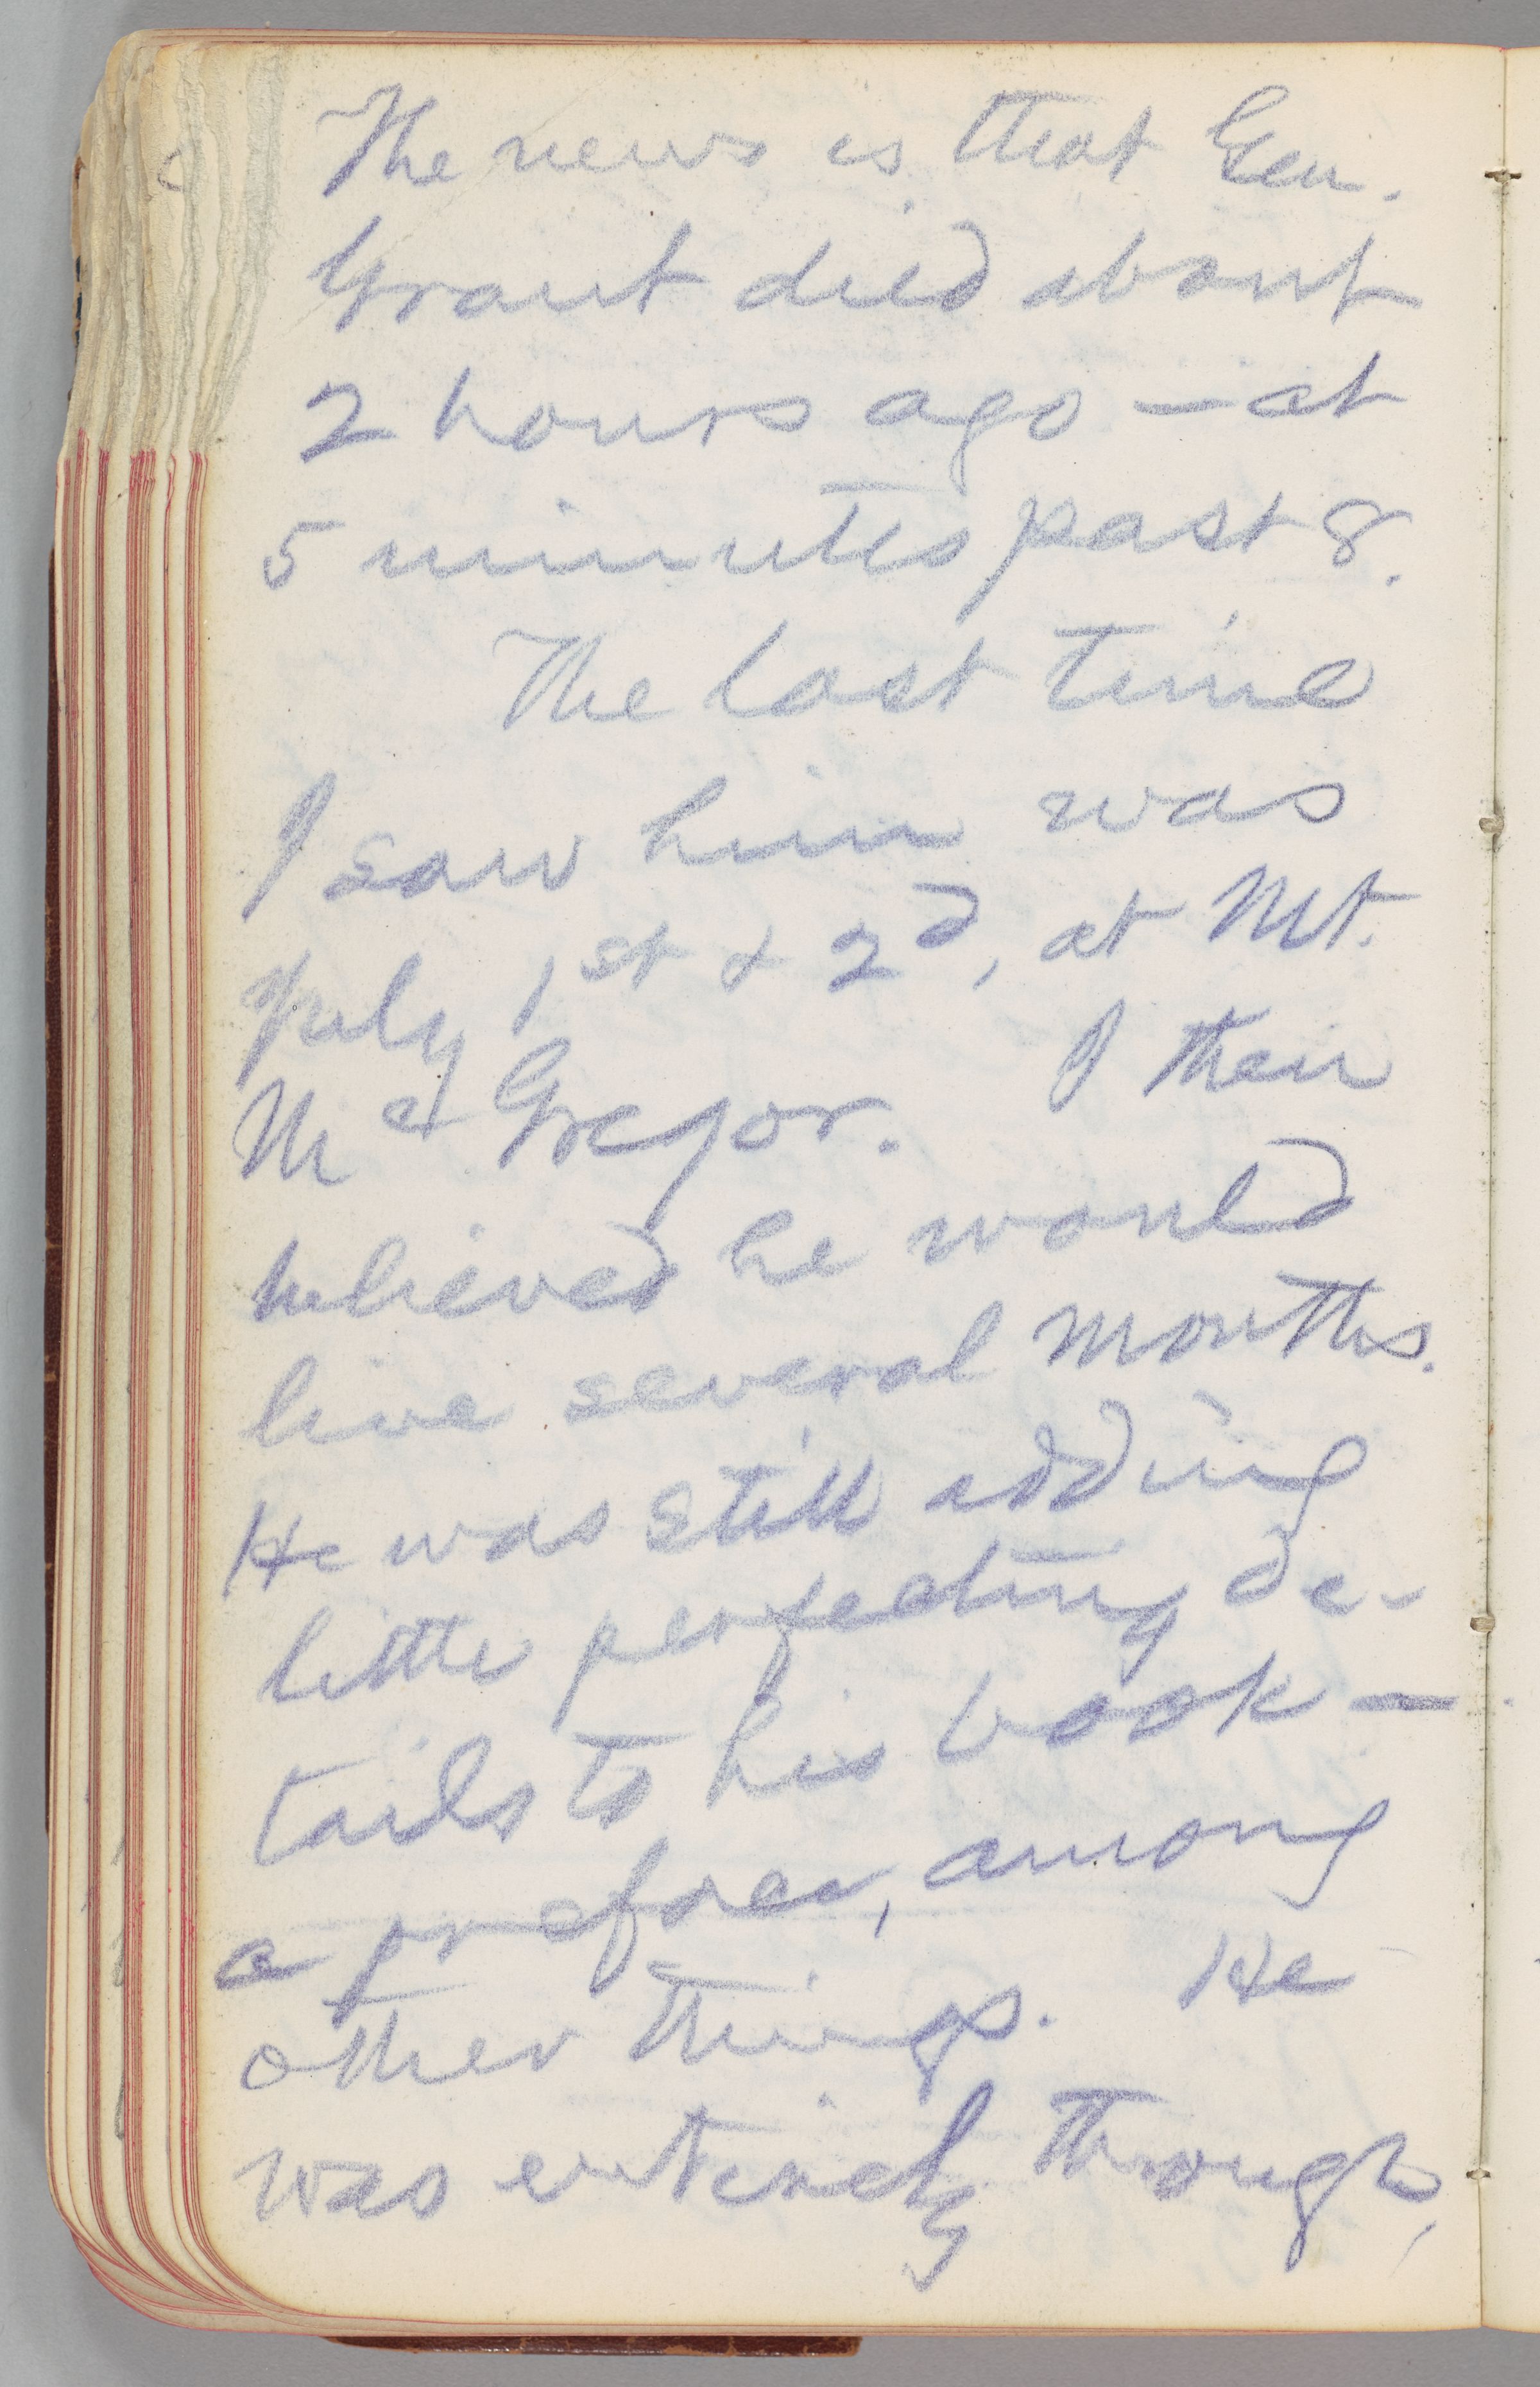 The news is that Gen.
Grant died about
2 hours ago — at
5 minutes past 8.
The last time
I saw him was
July 1st & 2d, at Mt.
McGregor. I then
believed he would
live several months.
He was still adding
little perfecting de-
tails to his book —
a preface, among
other things. He
was entirely through,